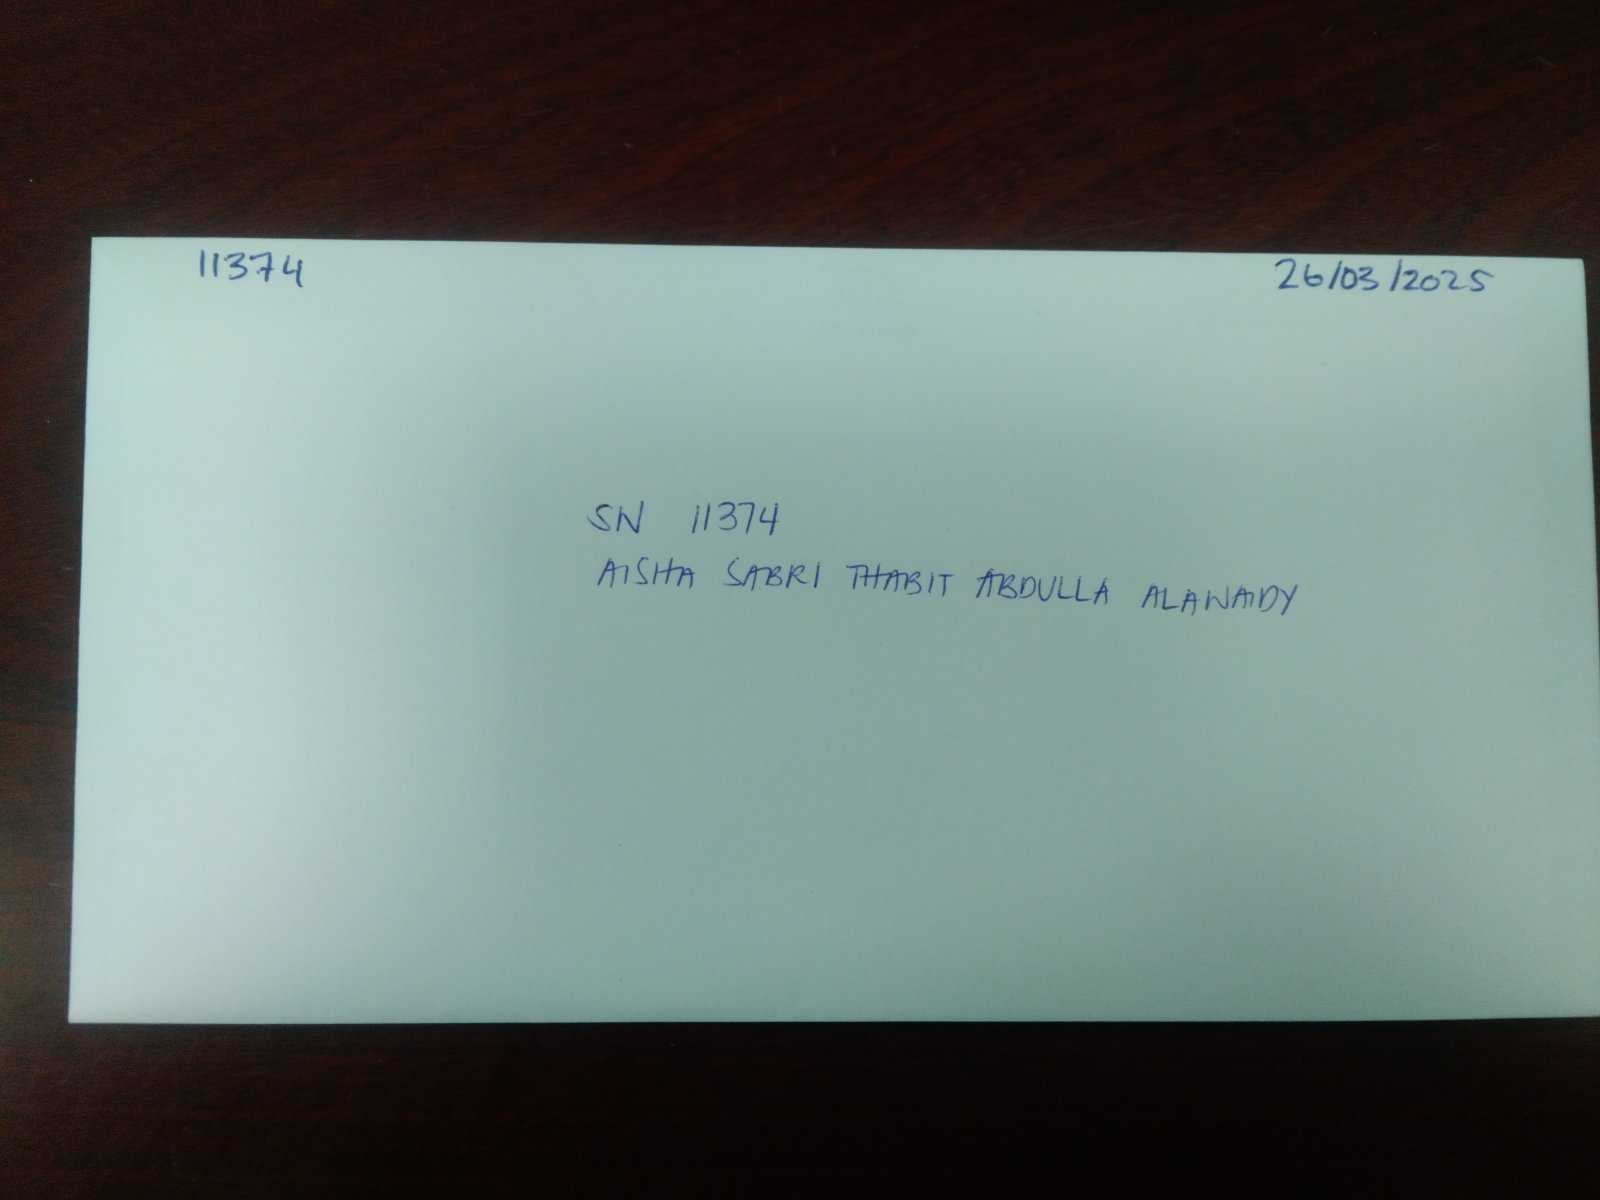 11374
26/03/2025
SN 11374
AISHA SABRI THABIT ABDULLA ALAWAIDY